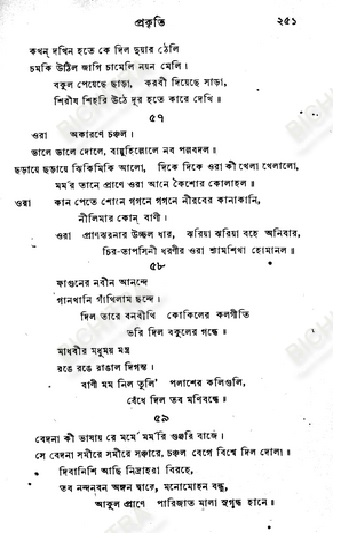 প্রকৃতি ২৫১
কখন্ দখিন হতে কে দিল দুয়ার ঠেলি
চমকি উঠিল জাগি চামেলি নয়ন মেলি॥
বকুল পেয়েছে ছাড়া, করবী দিয়েছে সাড়া,
শিরীষ শিহরি উঠে দূর হতে কারে দেখি॥
৫৭
ওরা অকারণে চঞ্চল।
ডালে ডালে দোলে, বায়ুহিল্লোলে নব পল্লবদল॥
ছড়ায়ে ছড়ায়ে ঝিকিমিকি আলো, দিকে দিকে ওরা কী খেলা খেলালো,
মর্মরতানে প্রাণে ওরা আনে কৈশোর কোলাহল॥
ওরা কান পেতে শোনে গগনে গগনে নীরবের কানাকানি,
নীলিমার কোন্ বাণী।
ওরা প্রাণঝরনার উচ্ছল ধার, ঝরিয়া ঝরিয়া বহে অনিবার,
চির-তাপসিনী ধরণীর ওরা শ্যামশিখা হোমানল॥
৫৮
ফাগুনের নবীন আনন্দে
গানখানি গাঁথিলাম ছন্দে।
দিল তারে বনবীথি কোকিলের কলগীতি
ভরি দিল বকুলের গন্ধে॥
মাধবীর মধুময় মন্ত্র
রঙে রঙে রাঙাল দিগন্ত।
বাণী মম নিল তুলি' পলাশের কলিগুলি,
বেঁধে দিল তব মণিবন্ধে॥
৫৯
বেদনা কী ভাষায় রে মর্মে মর্মরি গুঞ্জরি বাজে।
সে বেদনা সমীরে সমীরে সঞ্চারে, চঞ্চল বেগে বিশ্বে দিল দোলা॥
দিবানিশি আছি নিদ্রাহরা বিরহে,
তব নন্দনবন অঙ্গন দ্বারে, মনোমোহন বন্ধু,
আকুল প্রাণে পারিজাত মালা সুগন্ধ হানে॥